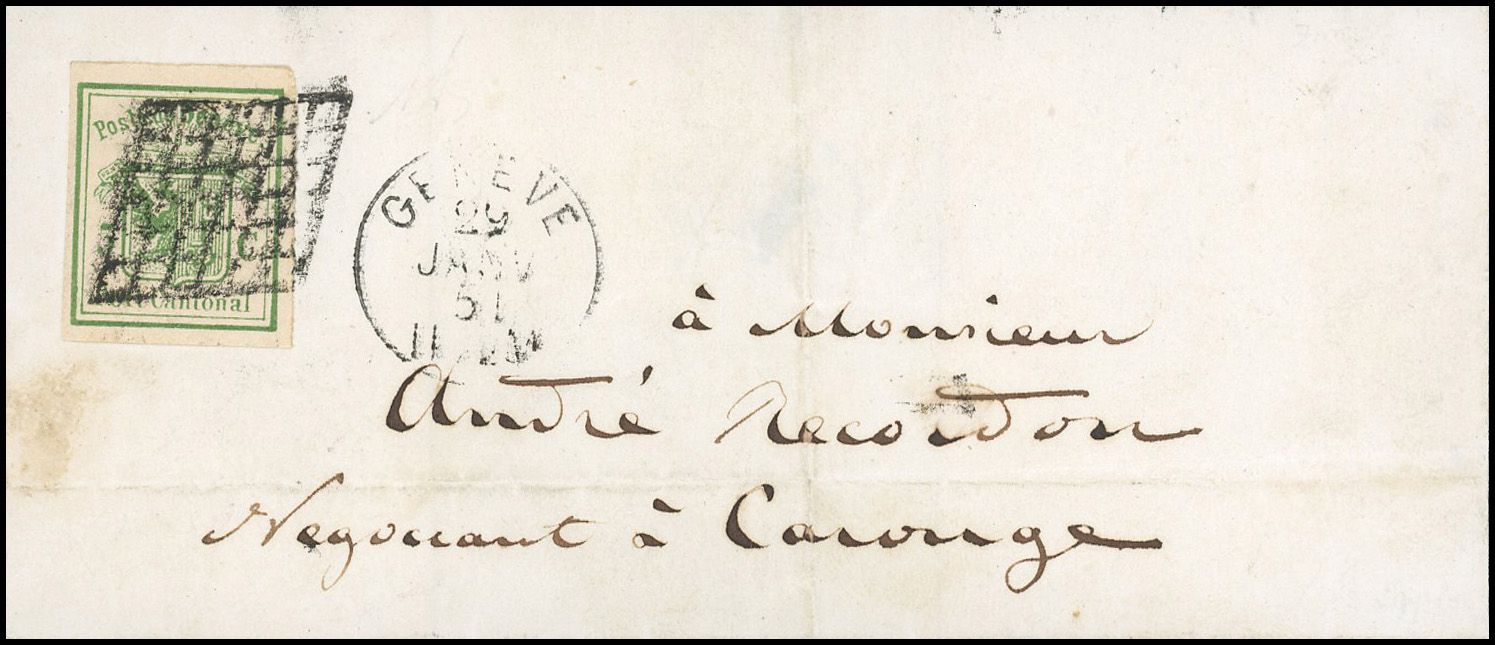 Cantonal
GENEVE
29
JANV
51
à Monsieur
André Recordon
Negociant à Carouge